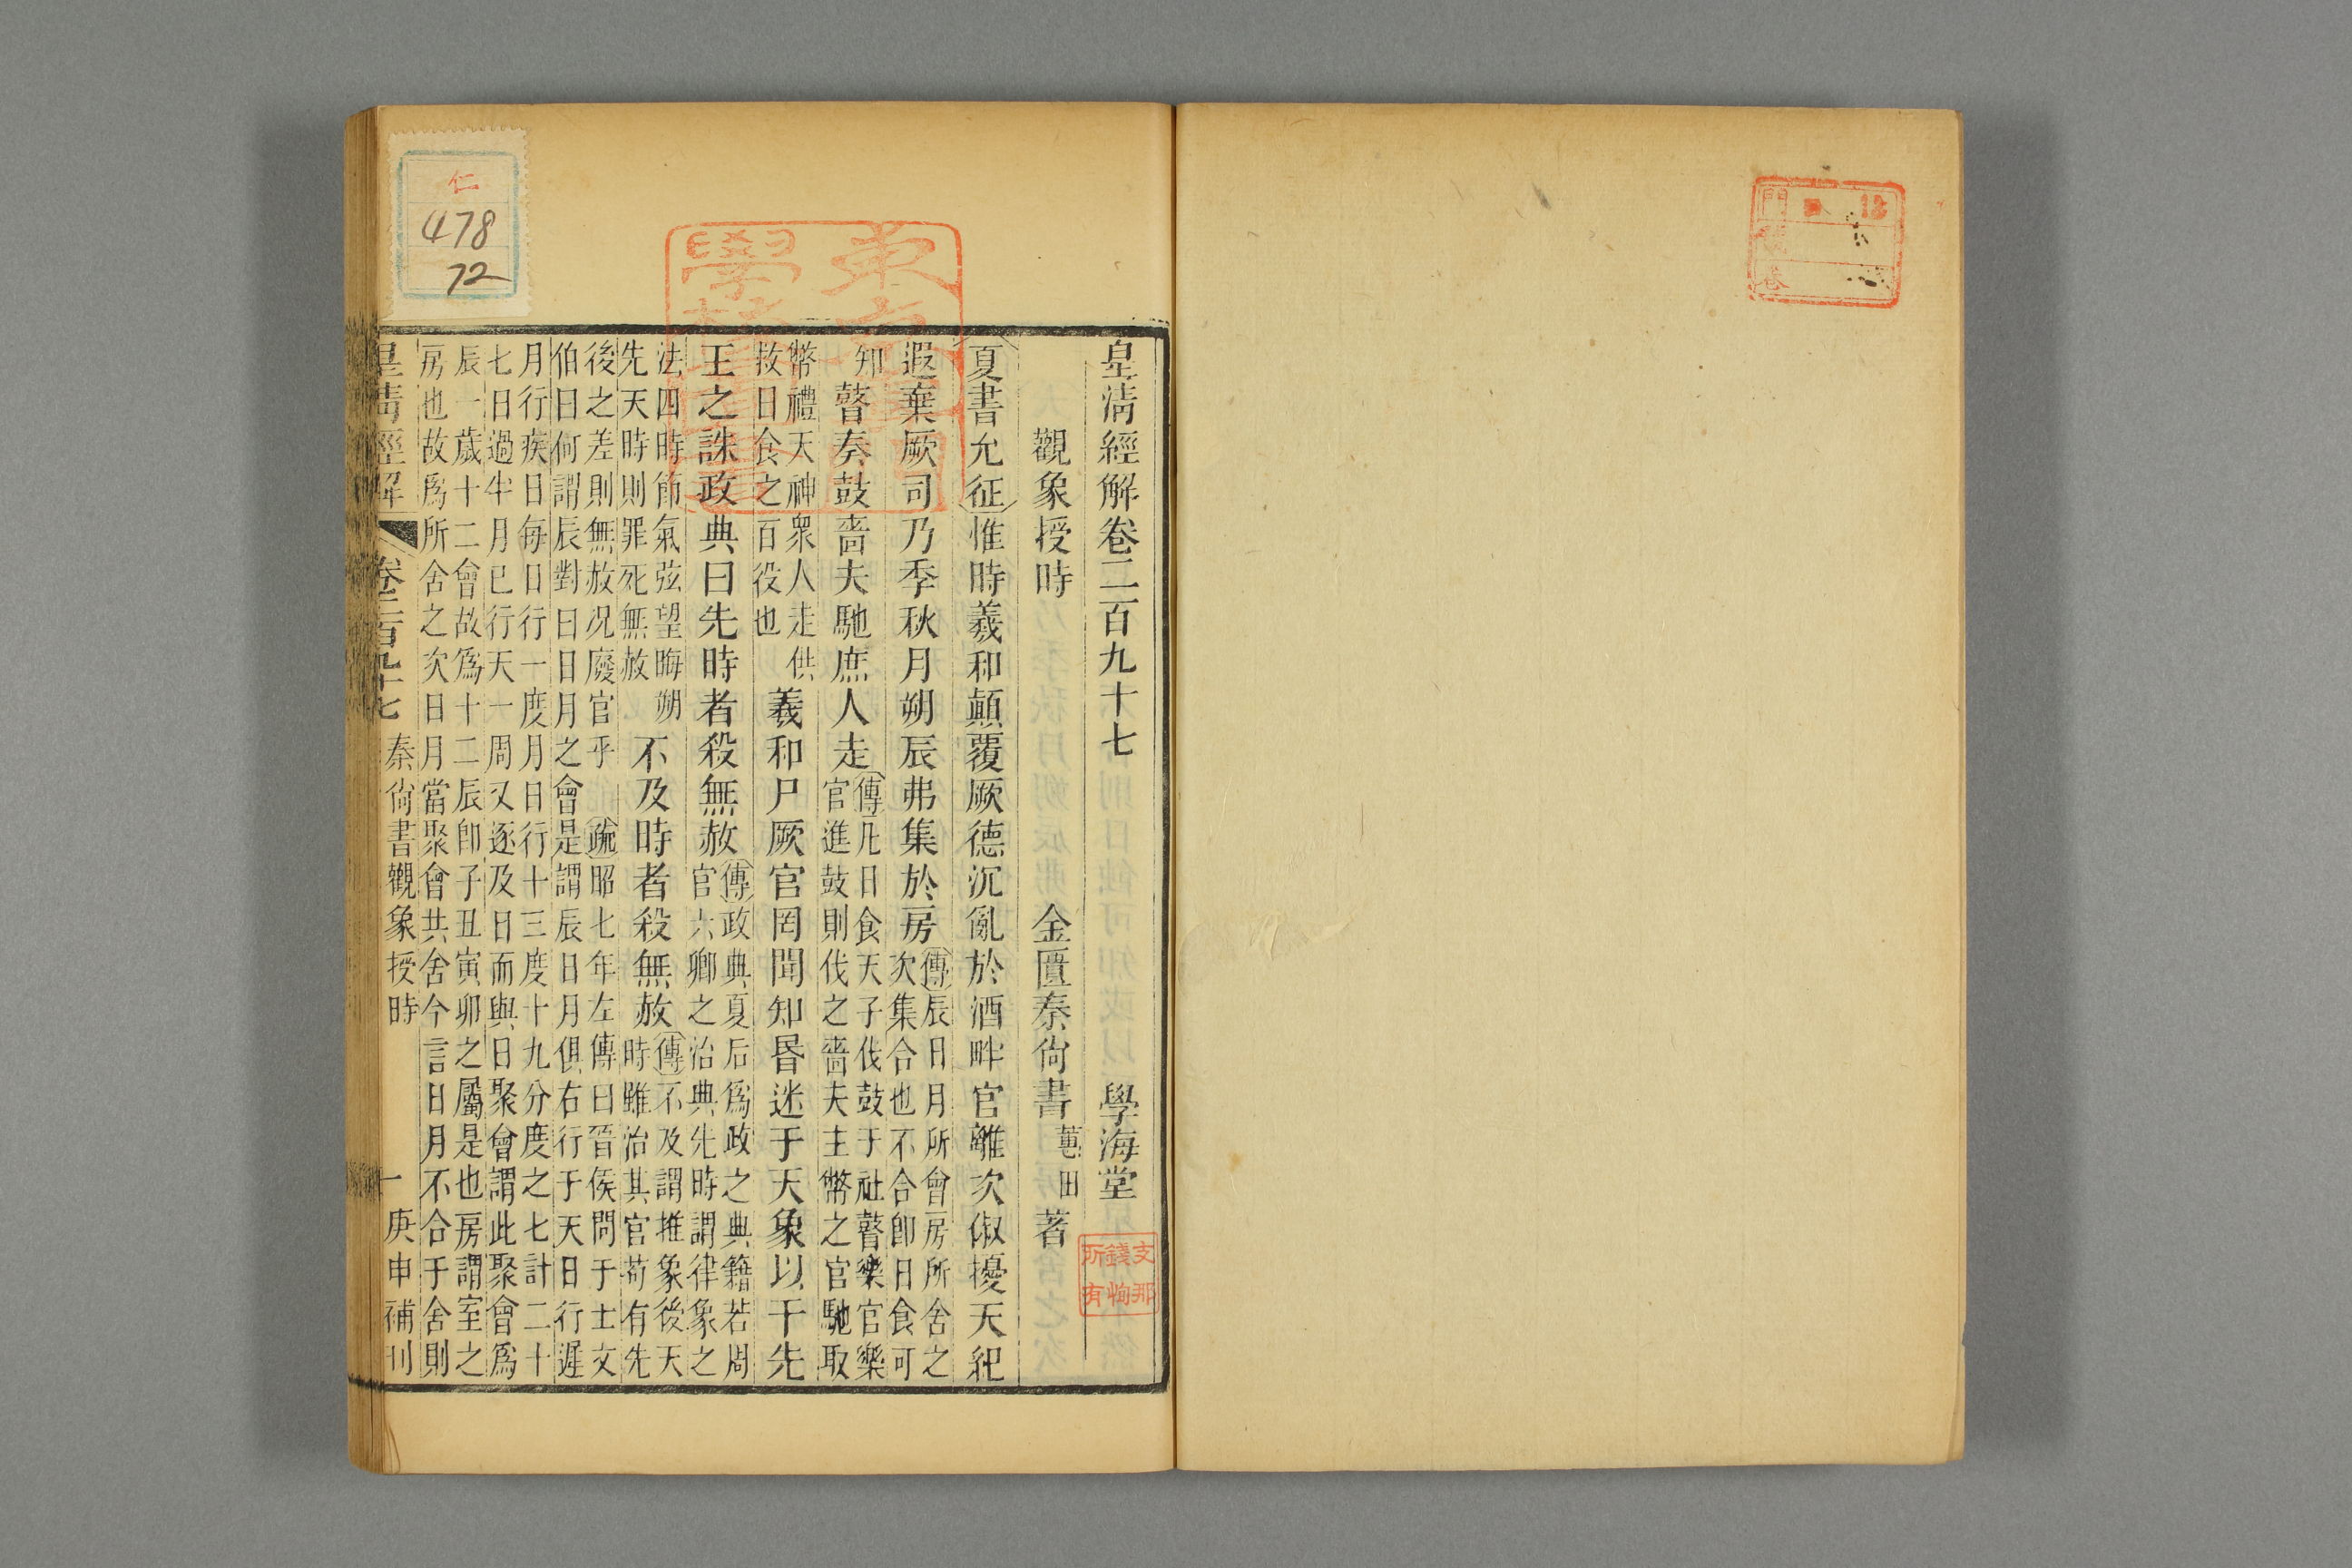 皇清經解卷二百九十七　學海堂
觀象授時　金匱秦尚書蕙田著
夏書允征惟時羲和顛覆厥德沉亂於酒畔官離次俶擾天紀
遐棄厥司乃季秋月朔辰弗集於房
傳辰日月所會房所舍之
次集合也不合即日食可
知
瞽奏鼓嗇夫馳庶人走
傳凡日食天子伐鼓于社瞽樂官樂
官進鼓則伐之嗇夫主幣之官馳取
幣禮天神衆人走供
救日食之百役也
羲和尸厥官罔聞知昬迷于天象以干先
王之誅政典曰先時者殺無赦
傳政典夏后爲政之典籍若周
官六卿之治典先時謂律象之
法四時節氣弦望晦朔
先天時則罪死無赦
不及時者殺無赦
傳不及謂推象後天
時雖治其官苟有先
後之差則無赦况廢官乎
疏昭七年左傳曰晉侯問于士文
伯曰何謂辰對曰日月之會是謂辰日月俱右行于天日行遲
月行疾日每日行一度月日行十三度十九分度之七計二十
七日過半月已行天一周又逐及日而與日聚會謂此聚會爲
辰一歲十二會故爲十二辰卽子丑寅卯之屬是也房謂室之
房也故爲所舍之次日月當聚會共舍今言日月不合于舍則
皇清經解　卷二百九十七　秦尚書觀象授時　一　庚申補刊
仁
478
72
支那
錢恂
所有
門
號
卷